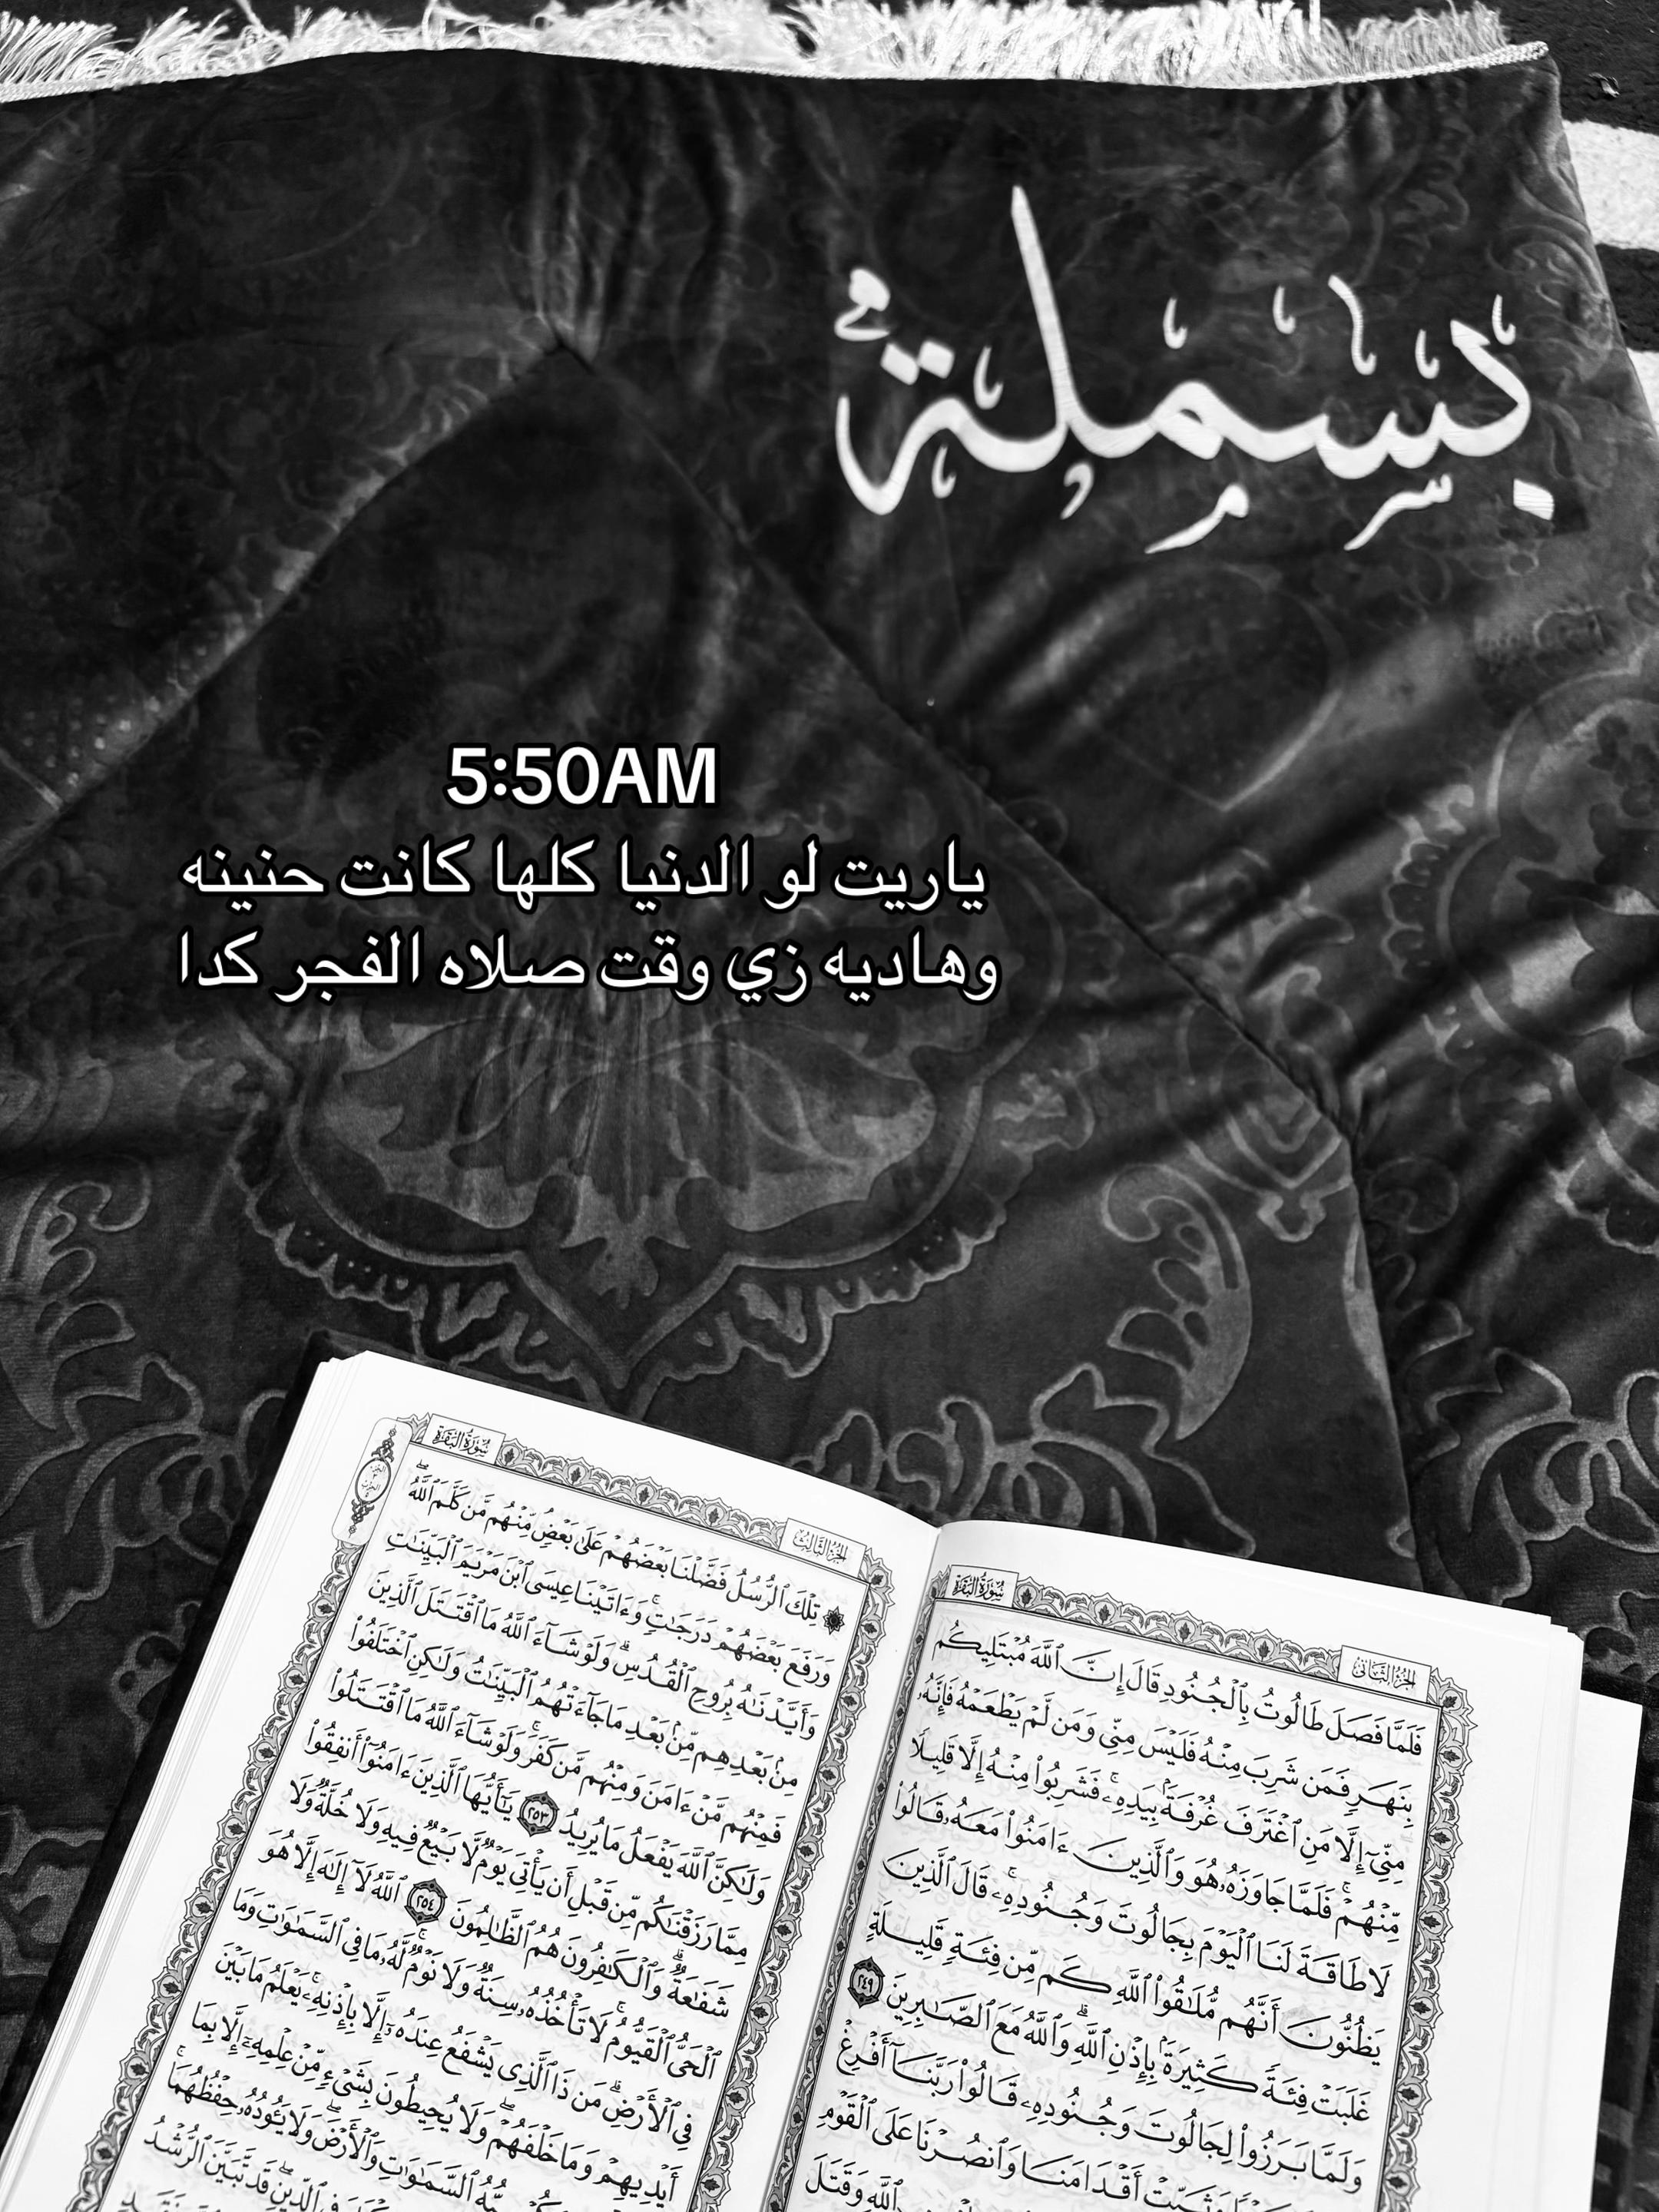 بِسْمِلَة
5:50AM
ياريت لو الدنيا كلها كانت حنينه
وهاديه زي وقت صلاه الفجر كدا
سُورَةُ البَقَرَةِ
الجُزْءُ الثَّانِي
فَلَمَّا فَصَلَ طَالُوتُ بِٱلْجُنُودِ قَالَ إِنَّ ٱللَّهَ مُبْتَلِيكُم
بِنَهَرٍ فَمَن شَرِبَ مِنْهُ فَلَيْسَ مِنِّي وَمَن لَّمْ يَطْعَمْهُ فَإِنَّهُۥ
مِنِّيٓ إِلَّا مَنِ ٱغْتَرَفَ غُرْفَةَۢ بِيَدِهِۦۚ فَشَرِبُوا۟ مِنْهُ إِلَّا قَلِيلًا
مِّنْهُمْۚ فَلَمَّا جَاوَزَهُۥ هُوَ وَٱلَّذِينَ ءَامَنُوا۟ مَعَهُۥ قَالُوا۟
لَا طَاقَةَ لَنَا ٱلْيَوْمَ بِجَالُوتَ وَجُنُودِهِۦۚ قَالَ ٱلَّذِينَ
يَظُنُّونَ أَنَّهُم مُّلَٰقُوا۟ ٱللَّهِ كَم مِّن فِئَةٍ قَلِيلَةٍ
غَلَبَتْ فِئَةً كَثِيرَةَۢ بِإِذْنِ ٱللَّهِۗ وَٱللَّهُ مَعَ ٱلصَّٰبِرِينَ ٢٤٩
وَلَمَّا بَرَزُوا۟ لِجَالُوتَ وَجُنُودِهِۦ قَالُوا۟ رَبَّنَآ أَفْرِغْ
وَثَبِّتْ أَقْدَامَنَا وَٱنصُرْنَا عَلَى ٱلْقَوْمِ
ٱللَّهِ وَقَتَلَ
سُورَةُ البَقَرَةِ
الجُزْءُ الثَّالِثُ
تِلْكَ ٱلرُّسُلُ فَضَّلْنَا بَعْضَهُمْ عَلَىٰ بَعْضٍۘ مِّنْهُم مَّن كَلَّمَ ٱللَّهُۖ
وَرَفَعَ بَعْضَهُمْ دَرَجَٰتٍۚ وَءَاتَيْنَا عِيسَى ٱبْنَ مَرْيَمَ ٱلْبَيِّنَٰتِ
وَأَيَّدْنَٰهُ بِرُوحِ ٱلْقُدُسِۗ وَلَوْ شَآءَ ٱللَّهُ مَا ٱقْتَتَلَ ٱلَّذِينَ
مِنۢ بَعْدِهِم مِّنۢ بَعْدِ مَا جَآءَتْهُمُ ٱلْبَيِّنَٰتُ وَلَٰكِنِ ٱخْتَلَفُوا۟
فَمِنْهُم مَّنْ ءَامَنَ وَمِنْهُم مَّن كَفَرَۚ وَلَوْ شَآءَ ٱللَّهُ مَا ٱقْتَتَلُوا۟
وَلَٰكِنَّ ٱللَّهَ يَفْعَلُ مَا يُرِيدُ ٢٥٣ يَٰٓأَيُّهَا ٱلَّذِينَ ءَامَنُوٓا۟ أَنفِقُوا۟
مِمَّا رَزَقْنَٰكُم مِّن قَبْلِ أَن يَأْتِيَ يَوْمٌ لَّا بَيْعٌ فِيهِ وَلَا خُلَّةٌ وَلَا
شَفَٰعَةٌۗ وَٱلْكَٰفِرُونَ هُمُ ٱلظَّٰلِمُونَ ٢٥٤ ٱللَّهُ لَآ إِلَٰهَ إِلَّا هُوَ
ٱلْحَيُّ ٱلْقَيُّومُۚ لَا تَأْخُذُهُۥ سِنَةٌ وَلَا نَوْمٌۚ لَّهُۥ مَا فِي ٱلسَّمَٰوَٰتِ وَمَا
فِي ٱلْأَرْضِۗ مَن ذَا ٱلَّذِي يَشْفَعُ عِندَهُۥٓ إِلَّا بِإِذْنِهِۦۚ يَعْلَمُ مَا بَيْنَ
أَيْدِيهِمْ وَمَا خَلْفَهُمْۖ وَلَا يُحِيطُونَ بِشَيْءٍ مِّنْ عِلْمِهِۦٓ إِلَّا بِمَا
ٱلسَّمَٰوَٰتِ وَٱلْأَرْضَۖ وَلَا يَـُٔودُهُۥ حِفْظُهُمَاۚ
ٱلدِّينِۖ قَد تَّبَيَّنَ ٱلرُّشْدُ